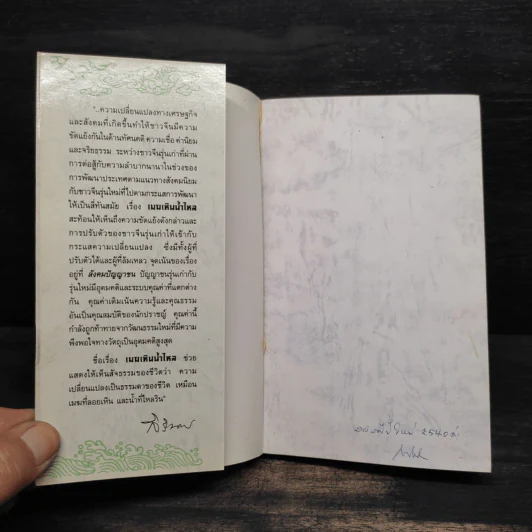 "..ความเปลี่ยนแปลงทางเศรษฐกิจ
และสังคมที่เกิดขึ้นทำให้ชาวจีนมีความ
ขัดแย้งกันในด้านทัศนคติ ความเชื่อ ค่านิยม
และจริยธรรม ระหว่างชาวจีนรุ่นเก่าที่ผ่าน
การต่อสู้กับความลำบากนานาในช่วงของ
การพัฒนาประเทศตามแนวทางสังคมนิยม
กับชาวจีนรุ่นใหม่ที่ไปตามกระแสการพัฒนา
ให้เป็นสี่ทันสมัย เรื่อง เมฆเหินน้ำไหล
สะท้อนให้เห็นถึงความขัดแย้งดังกล่าวและ
การปรับตัวของชาวจีนรุ่นเก่าให้เข้ากับ
กระแสความเปลี่ยนแปลง ซึ่งมีทั้งผู้ที่
ปรับตัวได้และผู้ที่ล้มเหลว จุดเน้นของเรื่อง
อยู่ที่ สังคมปัญญาชน ปัญญาชนรุ่นเก่ากับ
รุ่นใหม่มีอุดมคติและระบบคุณค่าที่แตกต่าง
กัน คุณค่าเดิมเน้นความรู้และคุณธรรม
อันเป็นคุณสมบัติของนักปราชญ์ คุณค่านี้
กำลังถูกท้าทายจากวัฒนธรรมใหม่ที่มีความ
พึงพอใจทางวัตถุเป็นอุดมคติสูงสุด
ชื่อเรื่อง เมฆเหินน้ำไหล ช่วย
แสดงให้เห็นสัจธรรมของชีวิตว่า ความ
เปลี่ยนแปลงเป็นธรรมดาของชีวิต เหมือน
เมฆที่ลอยเหิน และน้ำที่ไหลริน"
2540